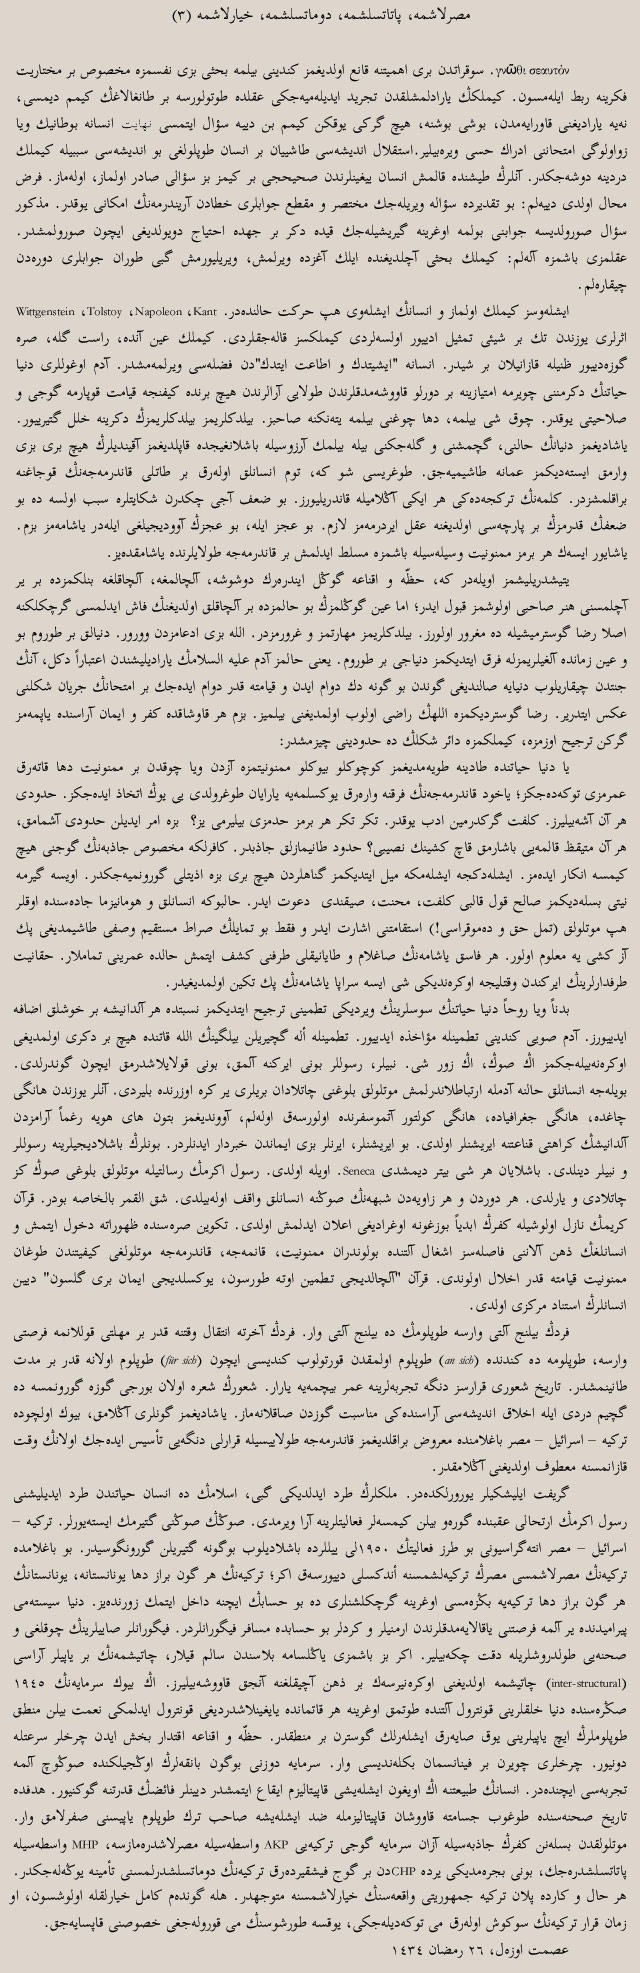 مصرلاشمه، پاتاتسلشمه، دوماتسلشمه، خیارلاشمه (۳)
γνῶθι σεαυτὸν. سوقراتدن بری اهمیتنه قانع اولدیغمز کندینی بیلمه بحثی بزی نفسمزه مخصوص بر مختاریت
فکرینه ربط ایله‌مسون. کیملکڭ یارادلمشلقدن تجرید ایدیله‌میه‌جکی عقلده طوتولورسه بر طانغالاغڭ کیمم دیمسی،
نه‌یه یارادیغنی قاورایه‌مدن، بوشی بوشنه، هیچ گرکی یوقکن کیمم بن دییه سؤال ایتمسی نهایت انسانه بوطانیك ویا
زواولوگی امتحاننی ادراك حسی ویره‌بیلیر.استقلال اندیشه‌سی طاشییان بر انسان طوپلولغی بو اندیشه‌سی سببیله کیملك
دردینه دوشه‌جکدر. آنلرڭ طیشنده قالمش انسان ییغینلرندن صحیحجی بر کیمز بز سؤالی صادر اولماز، اوله‌ماز. فرض
محال اولدی دییه‌لم: بو تقدیرده سؤاله ویریله‌جك مختصر و مقطع جوابلری خطادن آریندرمه‌نڭ امکانی یوقدر. مذکور
سؤال صورولدیسه جوابنی بولمه اوغرینه گیریشیله‌جك قیده دکر بر جهده احتیاج دویولدیغی ایچون صورولمشدر.
عقلمزی باشمزه آله‌لم: کیملك بحثی آچلدیغنده ایلك آغزده ویرلمش، ویریلیورمش گبی طوران جوابلری دوره‌دن
چیقاره‌لم.
ایشله‌وسز کیملك اولماز و انسانڭ ایشله‌وی هپ حرکت حالنده‌در. Wittgenstein ،Tolstoy ،Napoleon ،Kant
اثرلری یوزندن تك بر شیئی تمثیل ادییور اولسه‌لردی کیملکسز قاله‌جقلردی. کیملك عین آنده، راست گله، صره
گوزه‌دییور ظنیله قازانیلان بر شیدر. انسانه "ایشیتدك و اطاعت ایتدك"دن فضله‌سی ویرلمه‌مشدر. آدم اوغوللری دنیا
حیاتنڭ دکرمننی چویرمه امتیازینه بر دورلو قاووشه‌مدقلرندن طولایی آرالرندن هیچ برنده کیفنجه قیامت قوپارمه گوجی و
صلاحیتی یوقدر. چوق شی بیلمه، دها چوغنی بیلمه یته‌نکنه صاحبز. بیلدکلریمز بیلدکلریمزڭ دکرینه خلل گتیرییور.
یاشادیغمز دنیانڭ حالنی، گچمشنی و گله‌جکنی بیله بیلمك آرزوسیله باشلانغیجده قاپلدیغمز آقیندیلرڭ هیچ بری بزی
وارمق ایسته‌دیکمز عمانه طاشیمیه‌جق. طوغریسی شو که، توم انسانلق اوله‌رق بر طاتلی قاندرمه‌جه‌نڭ قوجاغنه
براقلمشزدر. کلمه‌نڭ ترکجه‌ده‌کی هر ایکی آڭلامیله قاندریلیورز. بو ضعف آجی چکدرن شکایتلره سبب اولسه ده بو
ضعفڭ قدرمزڭ بر پارچه‌سی اولدیغنه عقل ایردرمه‌مز لازم. بو عجز ایله، بو عجزڭ آوودیجیلغی ایله‌در یاشامه‌مز بزم.
یاشایور ایسه‌ك هر برمز ممنونیت وسیله‌سیله باشمزه مسلط ایدلمش بر قاندرمه‌جه طولایلرنده یاشامقده‌یز.
یتیشدریلیشمز اویله‌در که، حظّه و اقناعه گوڭل ایندره‌رك دوشوشه، آلچالمغه، آلچاقلغه بنلکمزده بر یر
آچلمسنی هنر صاحبی اولوشمز قبول ایدر؛ اما عین گوڭلمزڭ بو حالمزده بر آلچاقلق اولدیغنڭ فاش ایدلمسی گرچکلکنه
اصلا رضا گوسترمیشیله ده مغرور اولورز. بیلدکلریمز مهارتمز و غرورمزدر. الله بزی ادعامزدن وورور. دنیالق بر طوروم بو
و عین زمانده آلغیلریمزله فرق ایتدیکمز دنیاجی بر طوروم. یعنی حالمز آدم علیه السلامڭ یارادیلیشندن اعتباراً دکل، آنڭ
جنتدن چیقاریلوب دنیایه صالندیغی گوندن بو گونه دك دوام ایدن و قیامته قدر دوام ایده‌جك بر امتحانڭ جریان شکلنی
عکس ایتدریر. رضا گوستردیکمزه اللهڭ راضی اولوب اولمدیغنی بیلمیز. بزم هر قاوشاقده کفر و ایمان آراسنده یاپمه‌مز
گرکن ترجیح اوزمزه، کیملکمزه دائر شکلڭ ده حدودینی چیزمشدر:
یا دنیا حیاتنده طادینه طویه‌مدیغمز کوچوکلو بیوکلو ممنونیتمزه آزدن ویا چوقدن بر ممنونیت دها قاته‌رق
عمرمزی توکه‌ده‌جکز؛ یاخود قاندرمه‌جه‌نڭ فرقنه واره‌رق یوکسلمه‌یه یارایان طوغرولدی یی یوڭ اتخاذ ایده‌جکز. حدودی
هر آن آشه‌بیلیرز. کلفت گرکدرمین ادب یوقدر. تکر تکر هر برمز حدمزی بیلیرمی یز؟ بزه امر ایدیلن حدودی آشمامق،
هر آن متیقظ قالمه‌یی باشارمق قاچ کشینك نصیبی؟ حدود طانیمازلق جاذبدر. کافرلکه مخصوص جاذبه‌نڭ گوجنی هیچ
کیمسه انکار ایده‌مز. ایشله‌دکجه ایشله‌مکه میل ایتدیکمز گناهلردن هیچ بری بزه اذیتلی گورونمیه‌جکدر. اویسه گیرمه
نیتی بسله‌دیکمز صالح قول قالبی کلفت، محنت، صیقندی دعوت ایدر. حالبوکه انسانلق و هومانیزما جاده‌سنده اوقلر
هپ موتلولق (تمل حق و ده‌موقراسی!) استقامتنی اشارت ایدر و فقط بو تمایلڭ صراط مستقیم وصفی طاشیمدیغی پك
آز کشی یه معلوم اولور. هر فاسق یاشامه‌نڭ صاغلام و طایانیقلی طرفنی کشف ایتمش حالده عمرینی تماملار. حقانیت
طرفدارلرینڭ ایرکندن وقتلیجه اوکره‌ندیکی شی ایسه سراپا یاشامه‌نڭ پك تکین اولمدیغیدر.
بدناً ویا روحاً دنیا حیاتنڭ سوسلرینڭ ویردیکی تطمینی ترجیح ایتدیکمز نسبتده هر آلدانیشه بر خوشلق اضافه
ایدییورز. آدم صویی کندینی تطمینله مؤاخذه ایدییور. تطمینله أله گچیریلن بیلگینڭ الله قاتنده هیچ بر دکری اولمدیغی
اوکره‌نه‌بیله‌جکمز اڭ صوڭ، اڭ زور شی. نبیلر، رسوللر بونی ایرکنه آلمق، بونی قولایلاشدرمق ایچون گوندرلدی.
بویله‌جه انسانلق حالنه آدمله ارتباطلاندرلمش موتلولق بلوغنی چاتلادان بریلری یر کره اوزرنده بلیردی. آنلر یوزندن هانگی
چاغده، هانگی جغرافیاده، هانگی کولتور آتموسفرنده اولورسه‌ق اوله‌لم، آووندیغمز بتون های هویه رغماً آرامزدن
آلدانیشڭ کراهتی قناعتنه ایریشنلر اولدی. بو ایریشنلر، ایرنلر بزی ایماندن خبردار ایدنلردر. بونلرڭ باشلادیجیلرینه رسوللر
و نبیلر دینلدی. باشلایان هر شی بیتر دیمشدی Seneca. اویله اولدی. رسول اکرمڭ رسالتیله موتلولق بلوغی صوڭ کز
چاتلادی و یارلدی. هر دوردن و هر زاویه‌دن شبهه‌نڭ صوڭنه انسانلق واقف اوله‌بیلدی. شق القمر بالخاصه بودر. قرآن
کریمڭ نازل اولوشیله کفرڭ ابدیاً بوزغونه اوغرادیغی اعلان ایدلمش اولدی. تکوین صره‌سنده ظهوراته دخول ایتمش و
انسانلغڭ ذهن آلاننی فاصله‌سز اشغال آلتنده بولوندران ممنونیت، قانمه‌جه، قاندرمه‌جه موتلولغی کیفیتندن طوغان
ممنونیت قیامته قدر اخلال اولوندی. قرآن "آلچالدیجی تطمین اوته طورسون، یوکسلدیجی ایمان بری گلسون" دیین
انسانلرڭ استناد مرکزی اولدی.
فردڭ بیلنج آلتی وارسه طوپلومڭ ده بیلنج آلتی وار. فردڭ آخرته انتقال وقتنه قدر بر مهلتی قوللانمه فرصتی
وارسه، طوپلومه ده کندنده (an sich) طوپلوم اولمقدن قورتولوب کندیسی ایچون (für sich) طوپلوم اولانه قدر بر مدت
طانینمشدر. تاریخ شعوری قرارسز دنگه تجربه‌لرینه عمر بیچمه‌یه یارار. شعورڭ شعره اولان بورجی گوزه گورونمسه ده
گچیم دردی ایله اخلاق اندیشه‌سی آراسنده‌کی مناسبت گوزدن صاقلانه‌ماز. یاشادیغمز گونلری آڭلامق، بیوك اولچوده
ترکیه – اسرائیل – مصر باغلامنده معروض براقلدیغمز قاندرمه‌جه طولاییسیله قرارلی دنگه‌یی تأسیس ایده‌جك اولانڭ وقت
قازانمسنه معطوف اولدیغنی آڭلامقدر.
گریفت ایلیشکیلر یورورلکده‌در. ملکلرڭ طرد ایدلدیکی گبی، اسلامڭ ده انسان حیاتندن طرد ایدیلیشنی
رسول اکرمڭ ارتحالی عقبنده گوره‌و بیلن کیمسه‌لر فعالیتلرینه آرا ویرمدی. صوڭڭ صوڭنی گتیرمك ایسته‌یورلر. ترکیه –
اسرائیل – مصر انته‌گراسیونی بو طرز فعالیتڭ ۱۹٥۰لی ییللرده باشلادیلوب بوگونه گتیریلن گورونگوسیدر. بو باغلامده
ترکیه‌نڭ مصرلاشمسی مصرڭ ترکیه‌لشمسنه أندکسلی دییورسه‌ق اکر؛ ترکیه‌نڭ هر گون براز دها یونانستانه، یونانستانڭ
هر گون براز دها ترکیه‌یه بکزه‌مسی اوغرینه گرچکلشنلری ده بو حسابڭ ایچنه داخل ایتمك زورنده‌یز. دنیا سیسته‌می
پیرامیدنده یر آلمه فرصتنی یاقالایه‌مدقلرندن ارمنیلر و کردلر بو حسابده مسافر فیگورانلردر. فیگورانلر صاییلرینڭ چوقلغی و
صحنه‌یی طولدروشلریله دقت چکه‌بیلیر. اکر بز باشمزی یاڭلسامه بلاسندن سالم قیلار، چاتیشمه‌نڭ بر یاپیلر آراسی
(inter-structural) چاتیشمه اولدیغنی اوکره‌نیرسه‌ك بر ذهن آچیقلغنه آنجق قاووشه‌بیلیرز. اڭ بیوك سرمایه‌نڭ ۱۹٤٥
صڭره‌سنده دنیا خلقلرینی قونترول آلتنده طوتمق اوغرینه هر قاتمانده یایغینلاشدردیغی قونترول ایدلمکی نعمت بیلن منطق
طوپلوملرڭ ایچ یاپیلرینی یوق صایه‌رق ایشله‌رلك گوسترن بر منطقدر. حظّه و اقناعه اقتدار بخش ایدن چرخلر سرعتله
دونیور. چرخلری چویرن بر فینانسمان بکله‌ندیسی وار. سرمایه دوزنی بوگون بانقه‌لرڭ اوڭجیلکنده صوڭوچ آلمه
تجربه‌سی ایچنده‌در. انسانڭ طبیعتنه اڭ اویغون ایشله‌یشی قاپیتالیزم ایقاع ایتمشدر دیینلر فائضڭ قدرتنه گوکنیور. هدفده
تاریخ صحنه‌سنده طوغوب جسامته قاووشان قاپیتالیزمله ضد ایشله‌یشه صاحب ترك طوپلوم یاپیسنی صفرلامق وار.
موتلولقدن بسله‌نن کفرڭ جاذبه‌سیله آزان سرمایه گوجی ترکیه‌یی AKP واسطه‌سیله مصرلاشدره‌مازسه، MHP واسطه‌سیله
پاتاتسلشدره‌جك، بونی بجره‌مدیکی یرده CHPدن بر گوج فیشقیرده‌رق ترکیه‌نڭ دوماتسلشدرلمسنی تأمینه یوڭه‌له‌جکدر.
هر حال و کارده پلان ترکیه جمهوریتی واقعه‌سنڭ خیارلاشمسنه متوجهدر. هله گوندەم کامل خیارلقله اولوشسون، او
زمان قرار ترکیه‌نڭ سوکوش اوله‌رق می توکه‌دیله‌جکی، یوقسه طورشوسنڭ می قوروله‌جغی خصوصنی قاپسایه‌جق.
عصمت اوزه‌ل، ۲٦ رمضان ۱٤۳٤